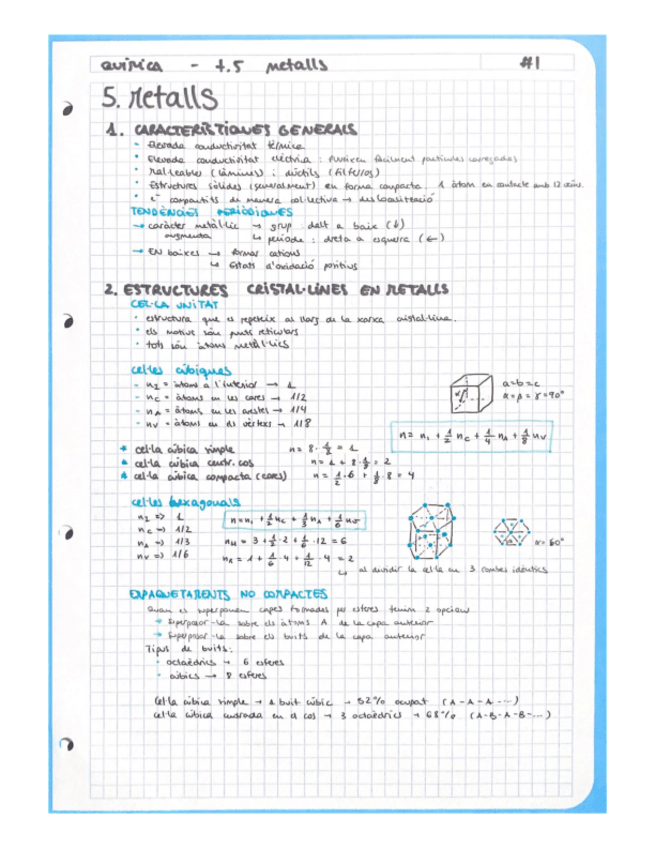 QUÍMICA - t.5 Metalls #1
5. Metalls
1. CARACTERÍSTIQUES GENERALS
· Elevada conductivitat tèrmica
· Elevada conductivitat elèctrica : flueixen fàcilment partícules carregades
· Mal·leables (làmines) i dúctils (filferros)
· Estructures sòlides (generalment) en forma compacta 1 àtom en contacte amb 12 àtoms.
· e⁻ compartits de manera col·lectiva → deslocalització
TENDÈNCIES PERIÒDIQUES
→ caràcter metàl·lic → grup : dalt a baix (↓)
augmenta ↳ període : dreta a esquerra (←)
→ EN baixes → formar cations
↳ Estats d'oxidació positius
2. ESTRUCTURES CRISTAL·LINES EN METALLS
CEL·LA UNITAT
· estructura que es repeteix al llarg de la xarxa cristal·lina.
· els motius són punts reticulars
· tots són àtoms metàl·lics
cel·les cúbiques
- nI = àtoms a l'interior → 1
- nC = àtoms en les cares → 1/2
- nA = àtoms en les arestes → 1/4
- nV = àtoms en els vèrtexs → 1/8
a=b=c
α=β=γ=90°
n = nI + 1/2 nC + 1/4 nA + 1/8 nV
cel·la cúbica simple n = 8 · 1/8 = 1
cel·la cúbica centr. cos n = 1 + 8 · 1/8 = 2
cel·la cúbica compacta (cares) n = 1/2 · 6 + 1/8 · 8 = 4
cel·les hexagonals
nI => 1
nC => 1/2
nA => 1/3
nV => 1/6
n = nI + 1/2 nC + 1/3 nA + 1/6 nV
nH = 3 + 1/2 · 2 + 1/6 · 12 = 6
nR = 1 + 1/6 · 4 + 1/12 · 4 = 2
↳ al dividir la cel·la en 3 rombes idèntics
α = 60°
EMPAQUETAMENTS NO COMPACTES
Quan es superposen capes formades per esferes tenim 2 opcions
→ Superposar-la sobre els àtoms A de la capa anterior
→ Superposar-la sobre els buits de la capa anterior
Tipus de buits:
· octaèdrics → 6 esferes
· cúbics → 8 esferes
Cel·la cúbica simple → 1 buit cúbic → 52% ocupat (A-A-A-...)
Cel·la cúbica centrada en el cos → 3 octaèdrics → 68% (A-B-A-B-...)